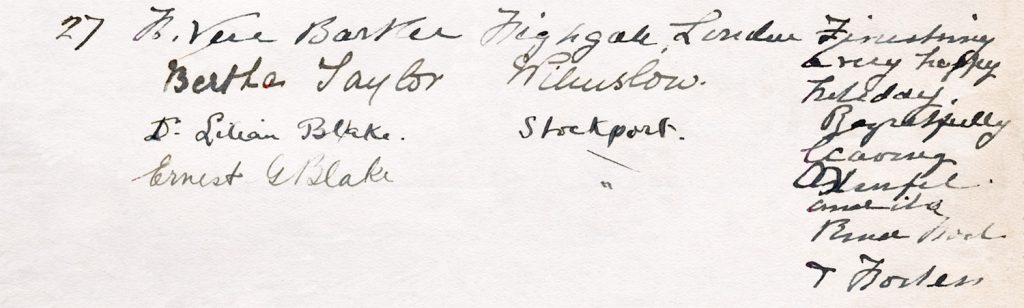 27 H. Vere Barker Highgate, London Finishing
a very happy
Bertha Taylor Wilmslow.
holiday.
D. Lilian Blake. Stockport. Regretfully
leaving
Ernest G Blake "
and its